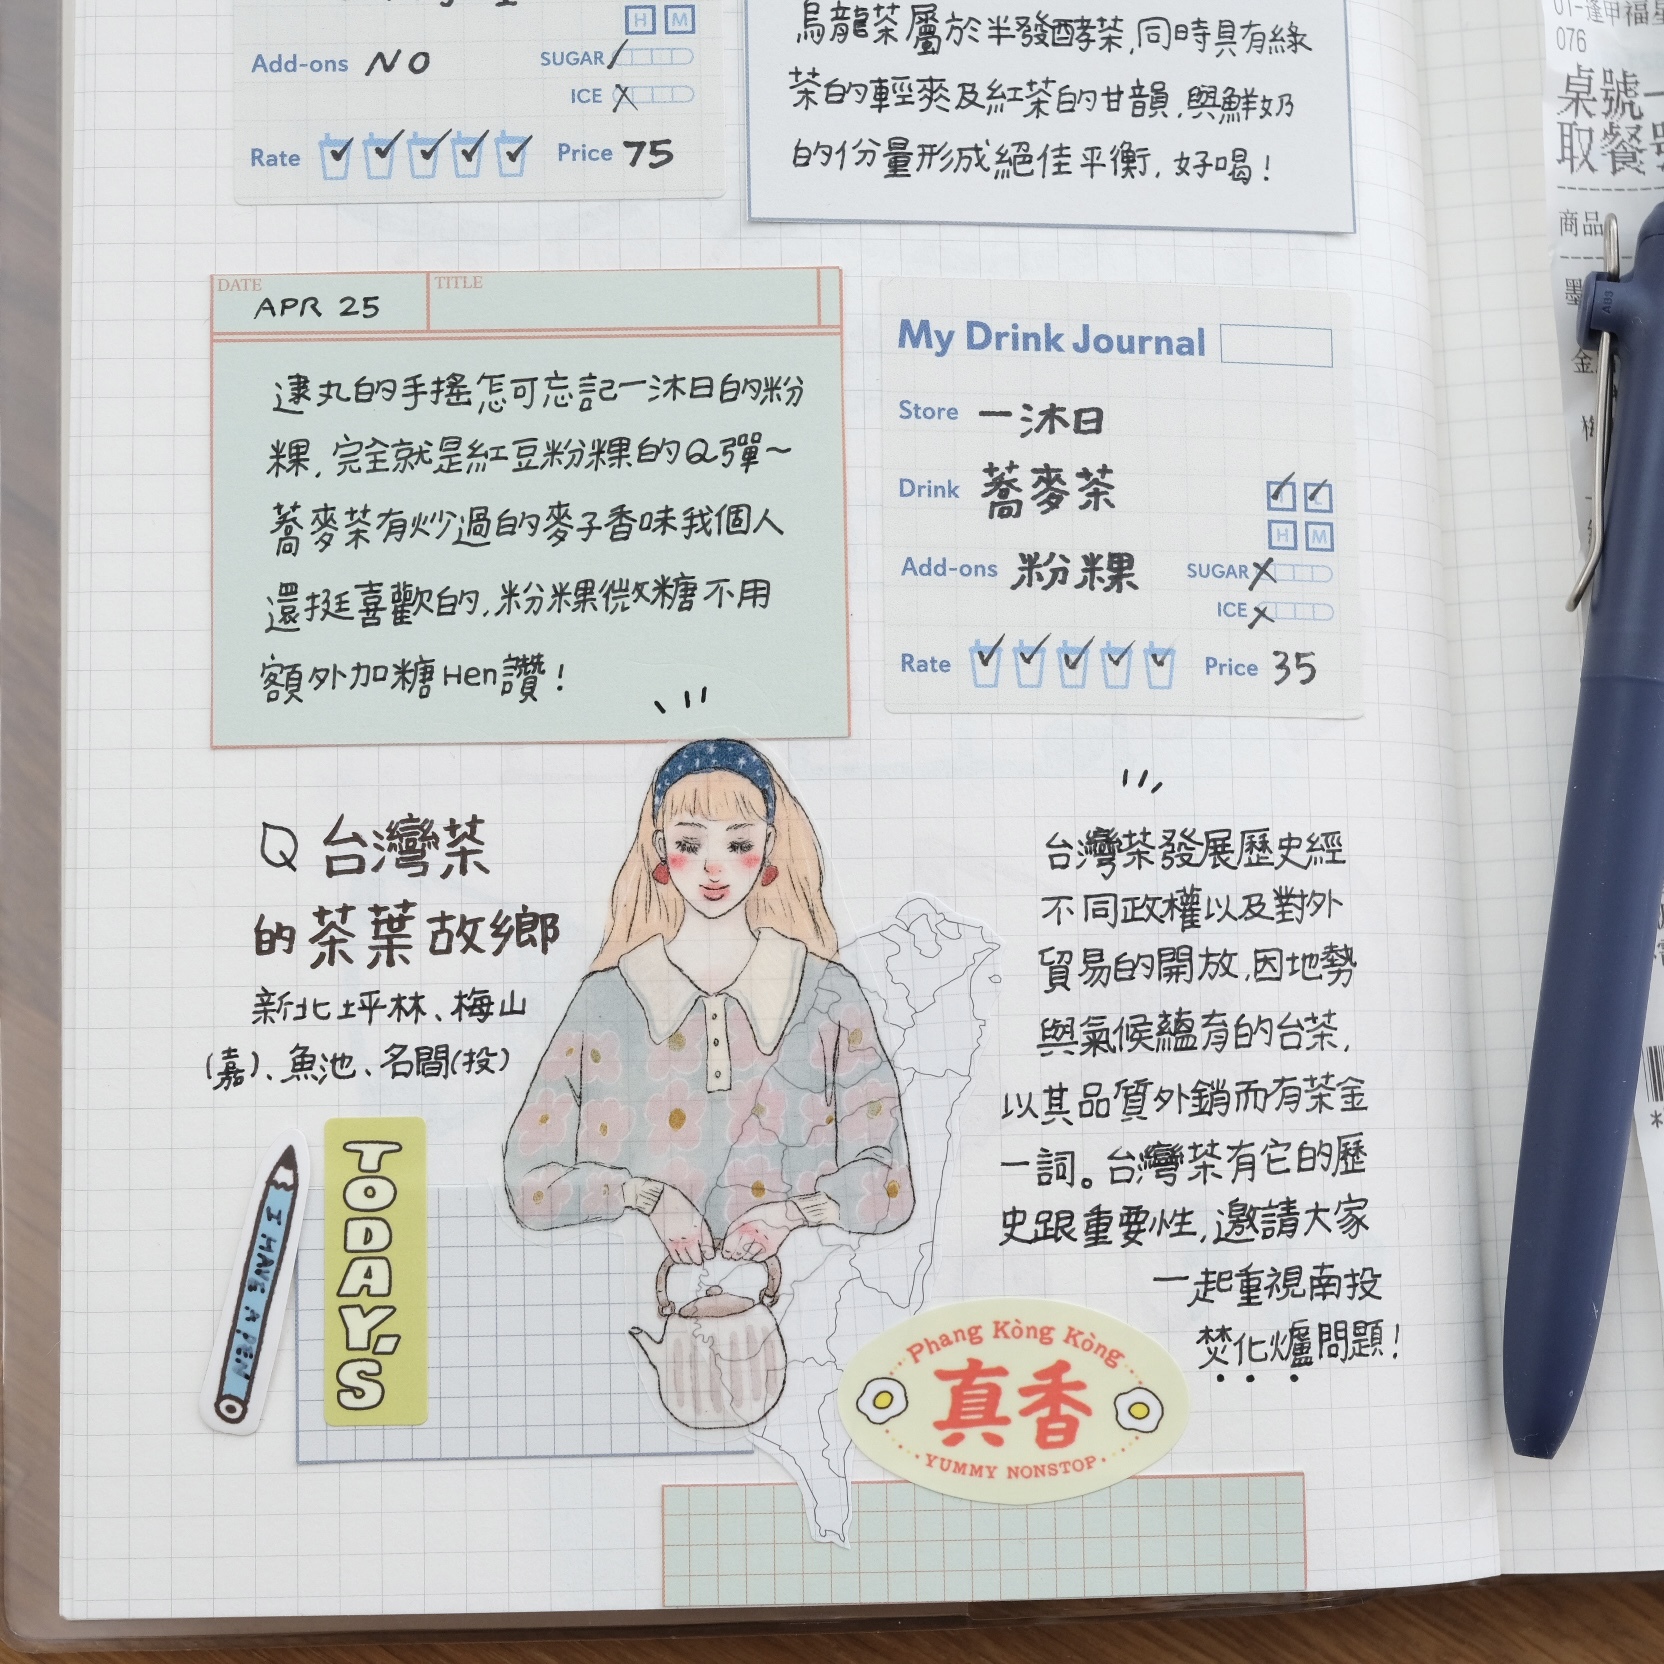 H M
Add-ons NO
SUGAR
ICE
Rate
Price 75
烏龍茶屬於半發酵茶,同時具有綠
茶的輕爽及紅茶的甘韻,與鮮奶
的份量形成絕佳平衡,好喝!
01-逢甲福星
076
桌號
取餐
商品
DATE APR 25
TITLE
逮丸的手搖怎可忘記一沐日的粉
粿,完全就是紅豆粉粿的Q彈~
蕎麥茶有炒過的麥子香味我個人
還挺喜歡的,粉粿微糖不用
額外加糖Hen讚!
My Drink Journal
Store 一沐日
Drink 蕎麥茶
H M
Add-ons 粉粿
SUGAR
ICE
Rate
Price 35
Q 台灣茶
的茶葉故鄉
新北坪林、梅山
(嘉)、魚池、名間(投)
台灣茶發展歷史經
不同政權以及對外
貿易的開放,因地勢
與氣候蘊育的台茶,
以其品質外銷而有茶金
一詞。台灣茶有它的歷
史跟重要性,邀請大家
一起重視南投
焚化爐問題!
I HAVE A PEN
TODAY'S
Phang Kòng Kòng
真香
YUMMY NONSTOP